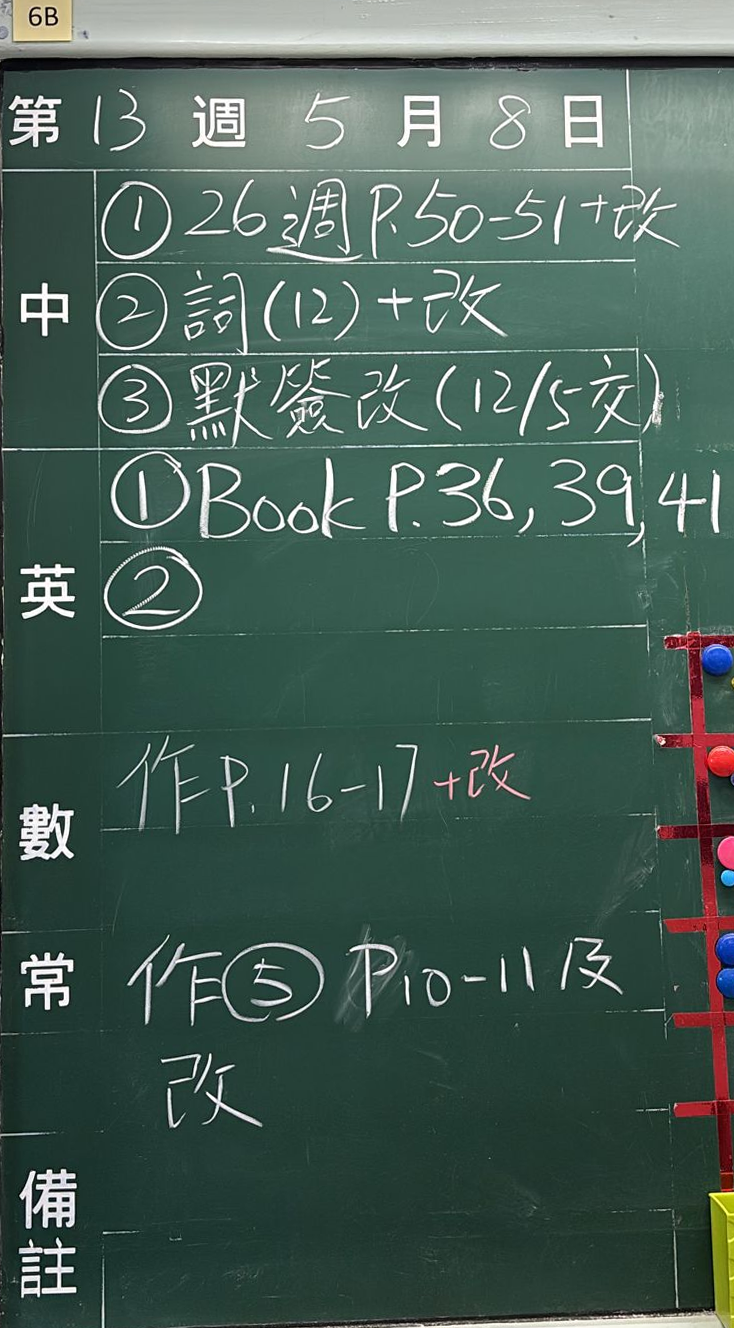 6B
第 13 週 5 月 8 日
中
① 26週 P.50-51+改
② 詞(12)+改
③ 默簽改(12/5交)
英
① Book P.36, 39, 41
②
數
作P.16-17+改
常
作⑤ P10-11及
改
備註